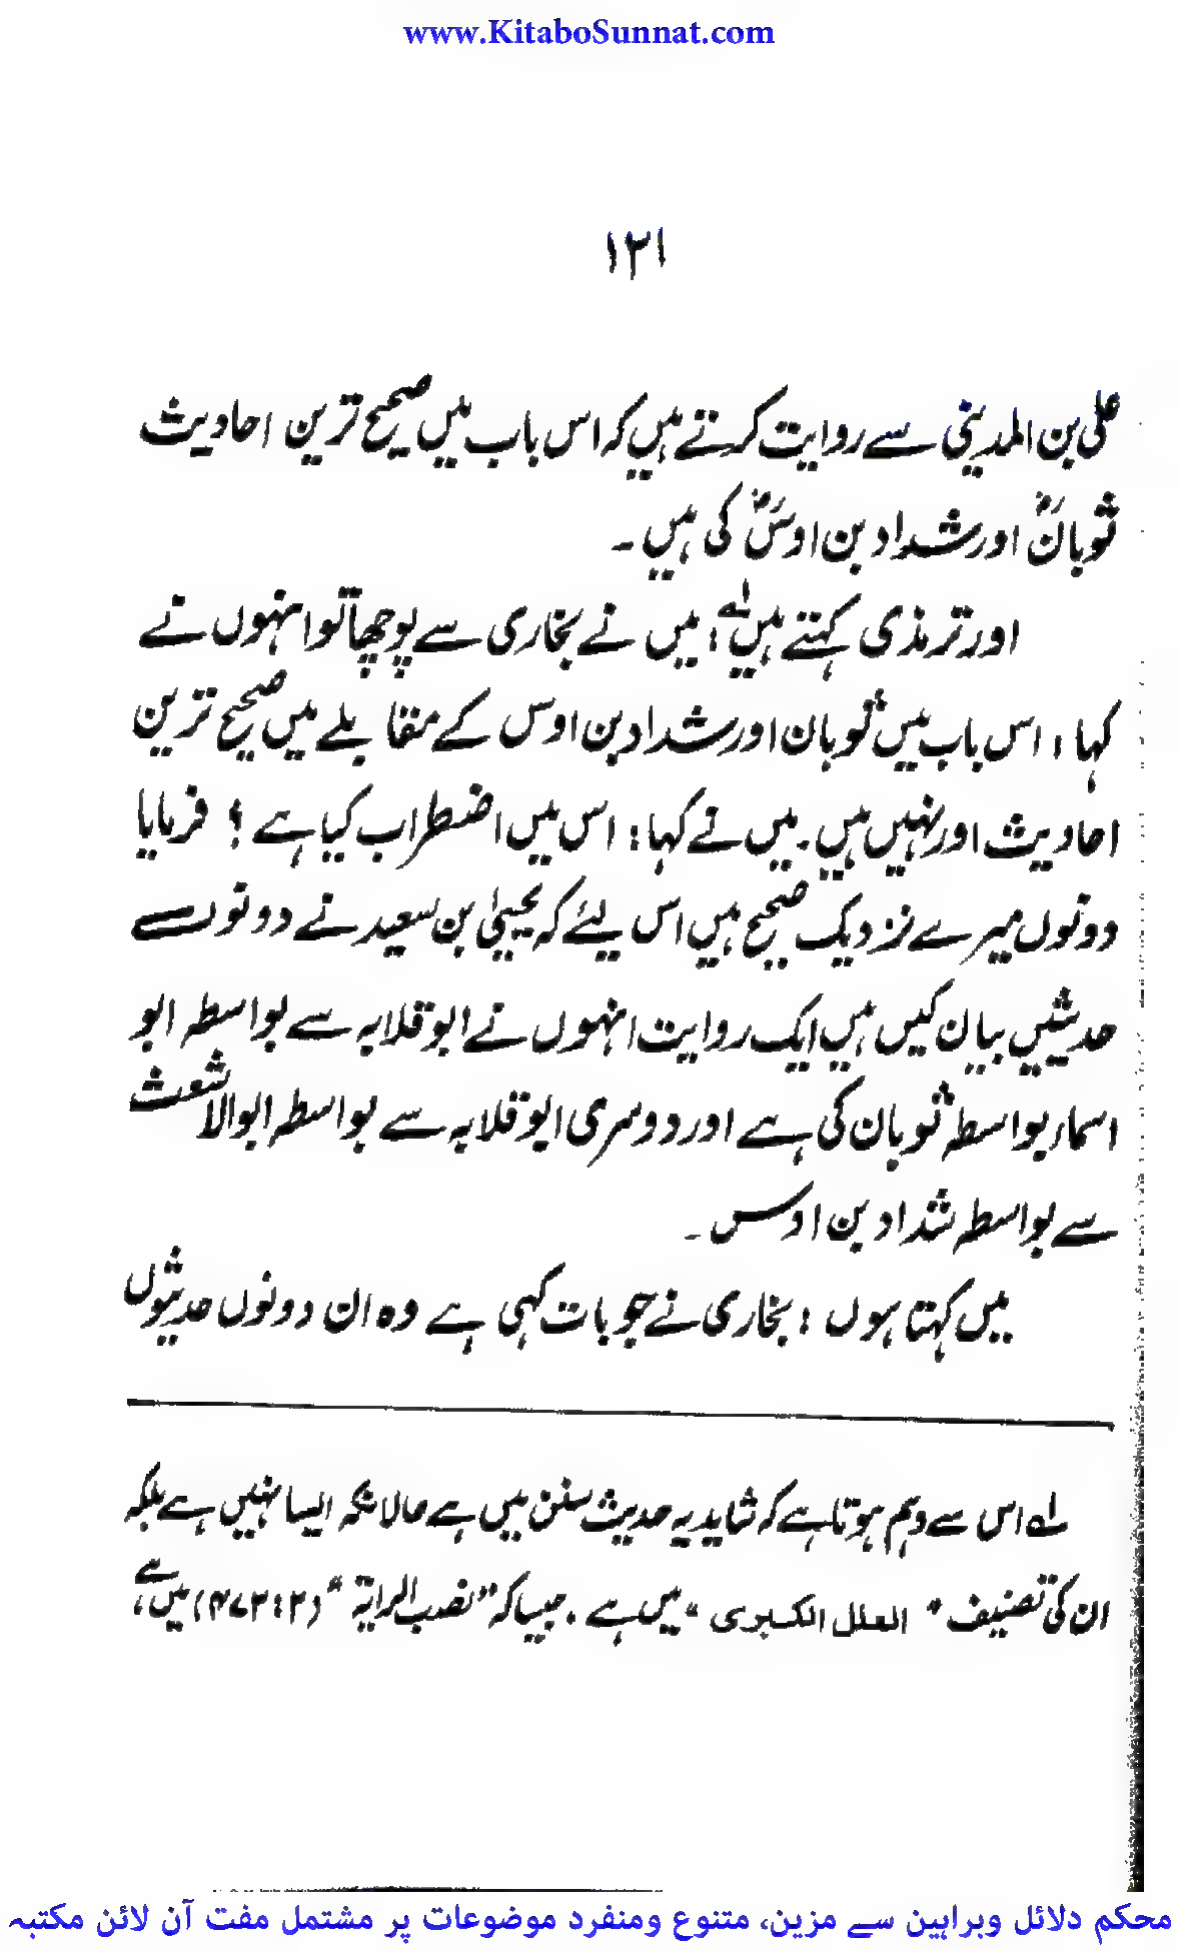 www.KitaboSunnat.com
۱۲۱
علی بن المدینی سے روایت کرتے ہیں کہ اس باب میں صحیح ترین احادیث
ثوبانؓ اور شداد بن اوسؓ کی ہیں ۔
اور ترمذی کہتے ہیں؂۱، میں نے بخاری سے پوچھا تو انہوں نے
کہا ، اس باب میں ثوبان اور شداد بن اوس کے مقابلے میں صحیح ترین
احادیث اور نہیں ہیں . میں نے کہا : اس میں اضطراب کیا ہے ؟ فرمایا
دونوں میرے نزدیک صحیح ہیں اس لیئے کہ یحییٰ بن سعید نے دونوں سے
حدیثیں بیان کیں ہیں ایک روایت انہوں نے ابو قلابہ سے بواسطہ ابو
اسماء بواسطہ ثوبان کی ہے اور دوسری ابو قلابہ سے بواسطہ ابو الاشعث
سے بواسطہ شداد بن اوس ۔
میں کہتا ہوں : بخاری نے جو بات کہی ہے وہ ان دونوں حدیثوں
؂۱ اس سے وہم ہوتا ہے کہ شاید یہ حدیث سنن میں ہے حالانکہ ایسا نہیں ہے بلکہ
ان کی تصنیف " العلل الکبری " میں ہے . جیسا کہ " نصب الرایۃ " (۲ : ۴۷۲) میں ہے ،
محکم دلائل وبراہین سے مزین، متنوع ومنفرد موضوعات پر مشتمل مفت آن لائن مکتبہ